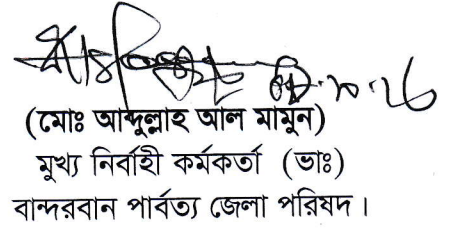 (মোঃ আব্দুল্লাহ আল মামুন)
মুখ্য নির্বাহী কর্মকর্তা (ভাঃ)
বান্দরবান পার্বত্য জেলা পরিষদ।